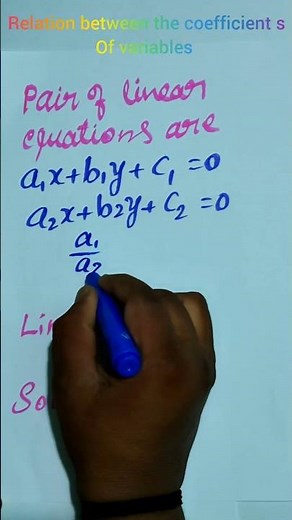 Relation between the coefficient s
Of variables
Pair of linear
equations are
a₁x+b₁y+c₁=0
a₂x+b2y+c₂=0
a₁
a₂